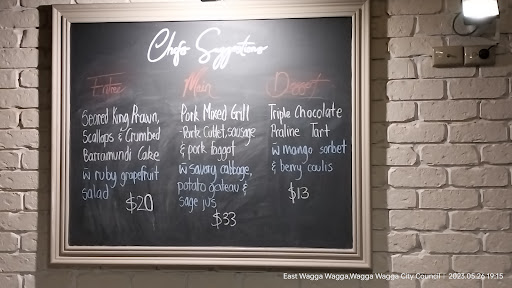 Chefs Suggestions
Entree
Seared King Prawn,
Scallops & Crumbed
Barramundi Cake
w ruby grapefruit
salad
$20
Main
Pork Mixed Grill
Pork Cutlet, sausage
& pork faggot
w savory cabbage,
potato gateau &
sage jus
$33
Dessert
Triple Chocolate
Praline Tart
w mango sorbet
& berry coulis
$13
East Wagga Wagga,Wagga Wagga City Council | 2023.05.26 19:15